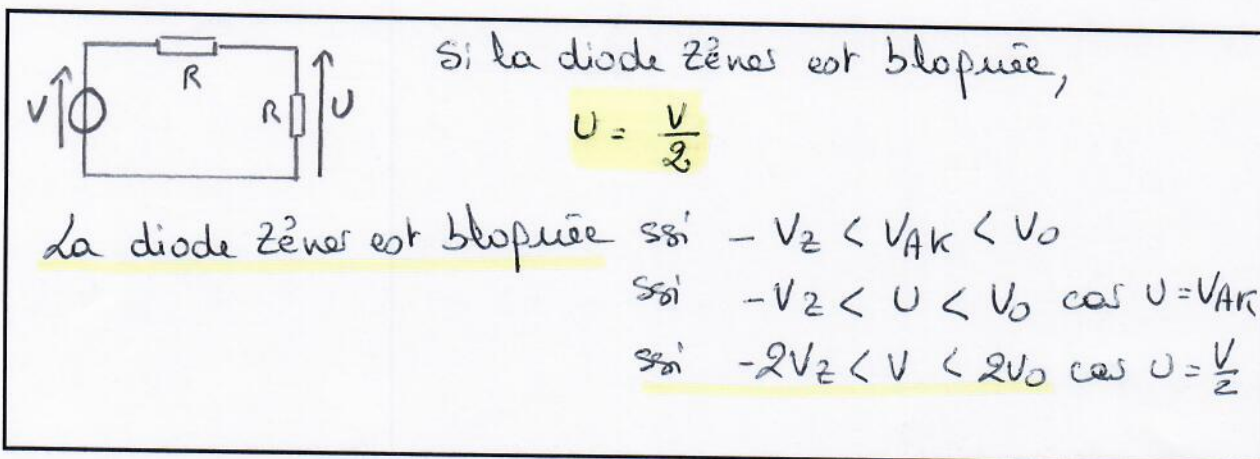 V R R U
Si la diode Zéner est bloquée,
U = V/2
La diode Zéner est bloquée ssi - VZ < VAK < V0
ssi -VZ < U < V0 car U = VAK
ssi -2VZ < V < 2V0 car U = V/2